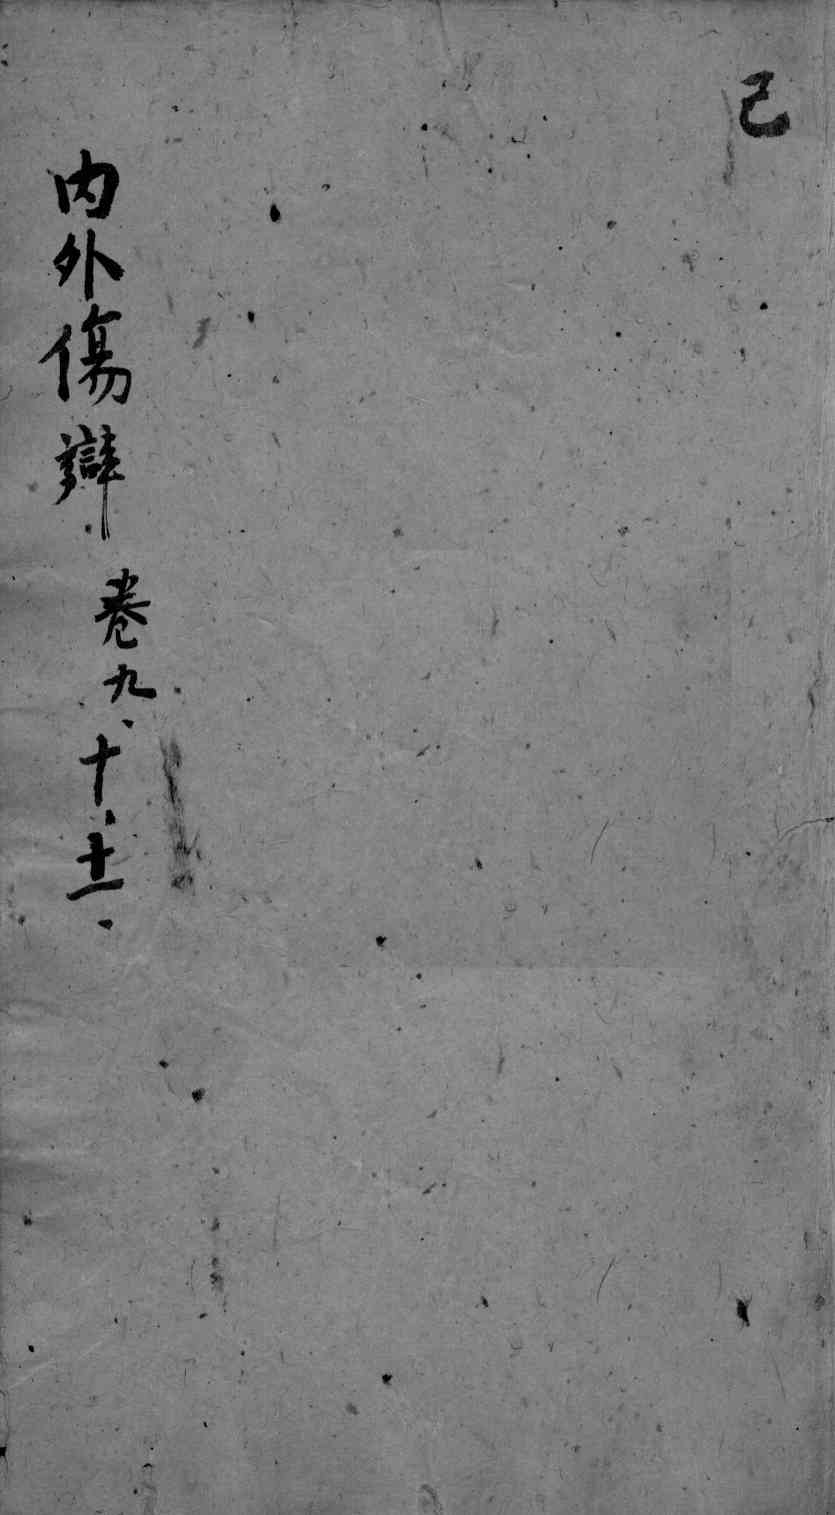 己
内外傷辯 卷九、十、十一、